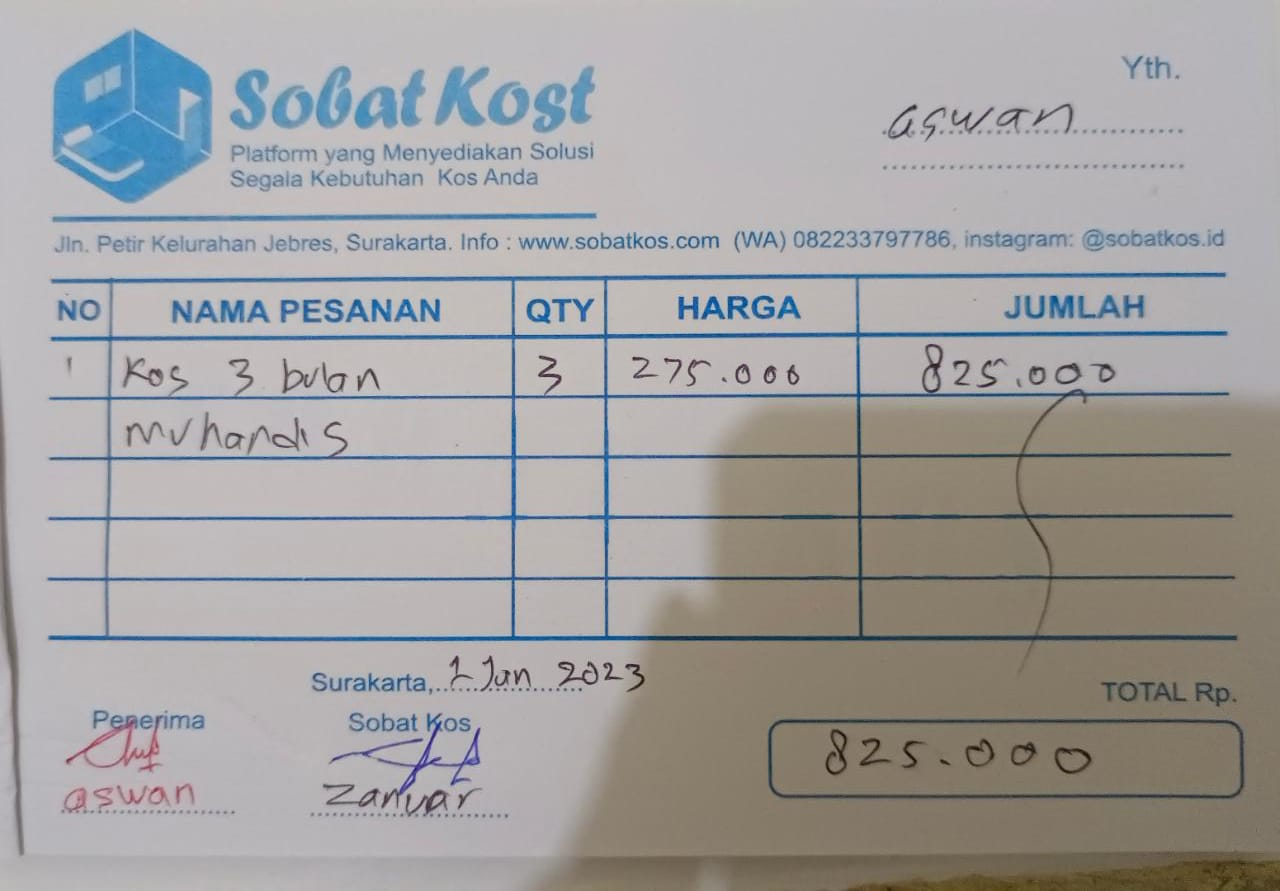 Sobat Kost
Platform yang Menyediakan Solusi
Segala Kebutuhan Kos Anda
Yth.
aswan
Jln. Petir Kelurahan Jebres, Surakarta. Info : www.sobatkos.com (WA) 082233797786, instagram: @sobatkos.id
NO NAMA PESANAN QTY HARGA JUMLAH
1 Kos 3 bulan 3 275.000 825.000
Muhandis
Surakarta, 1 Jan 2023
TOTAL Rp.
Penerima Sobat Kos
825.000
aswan Zanuar